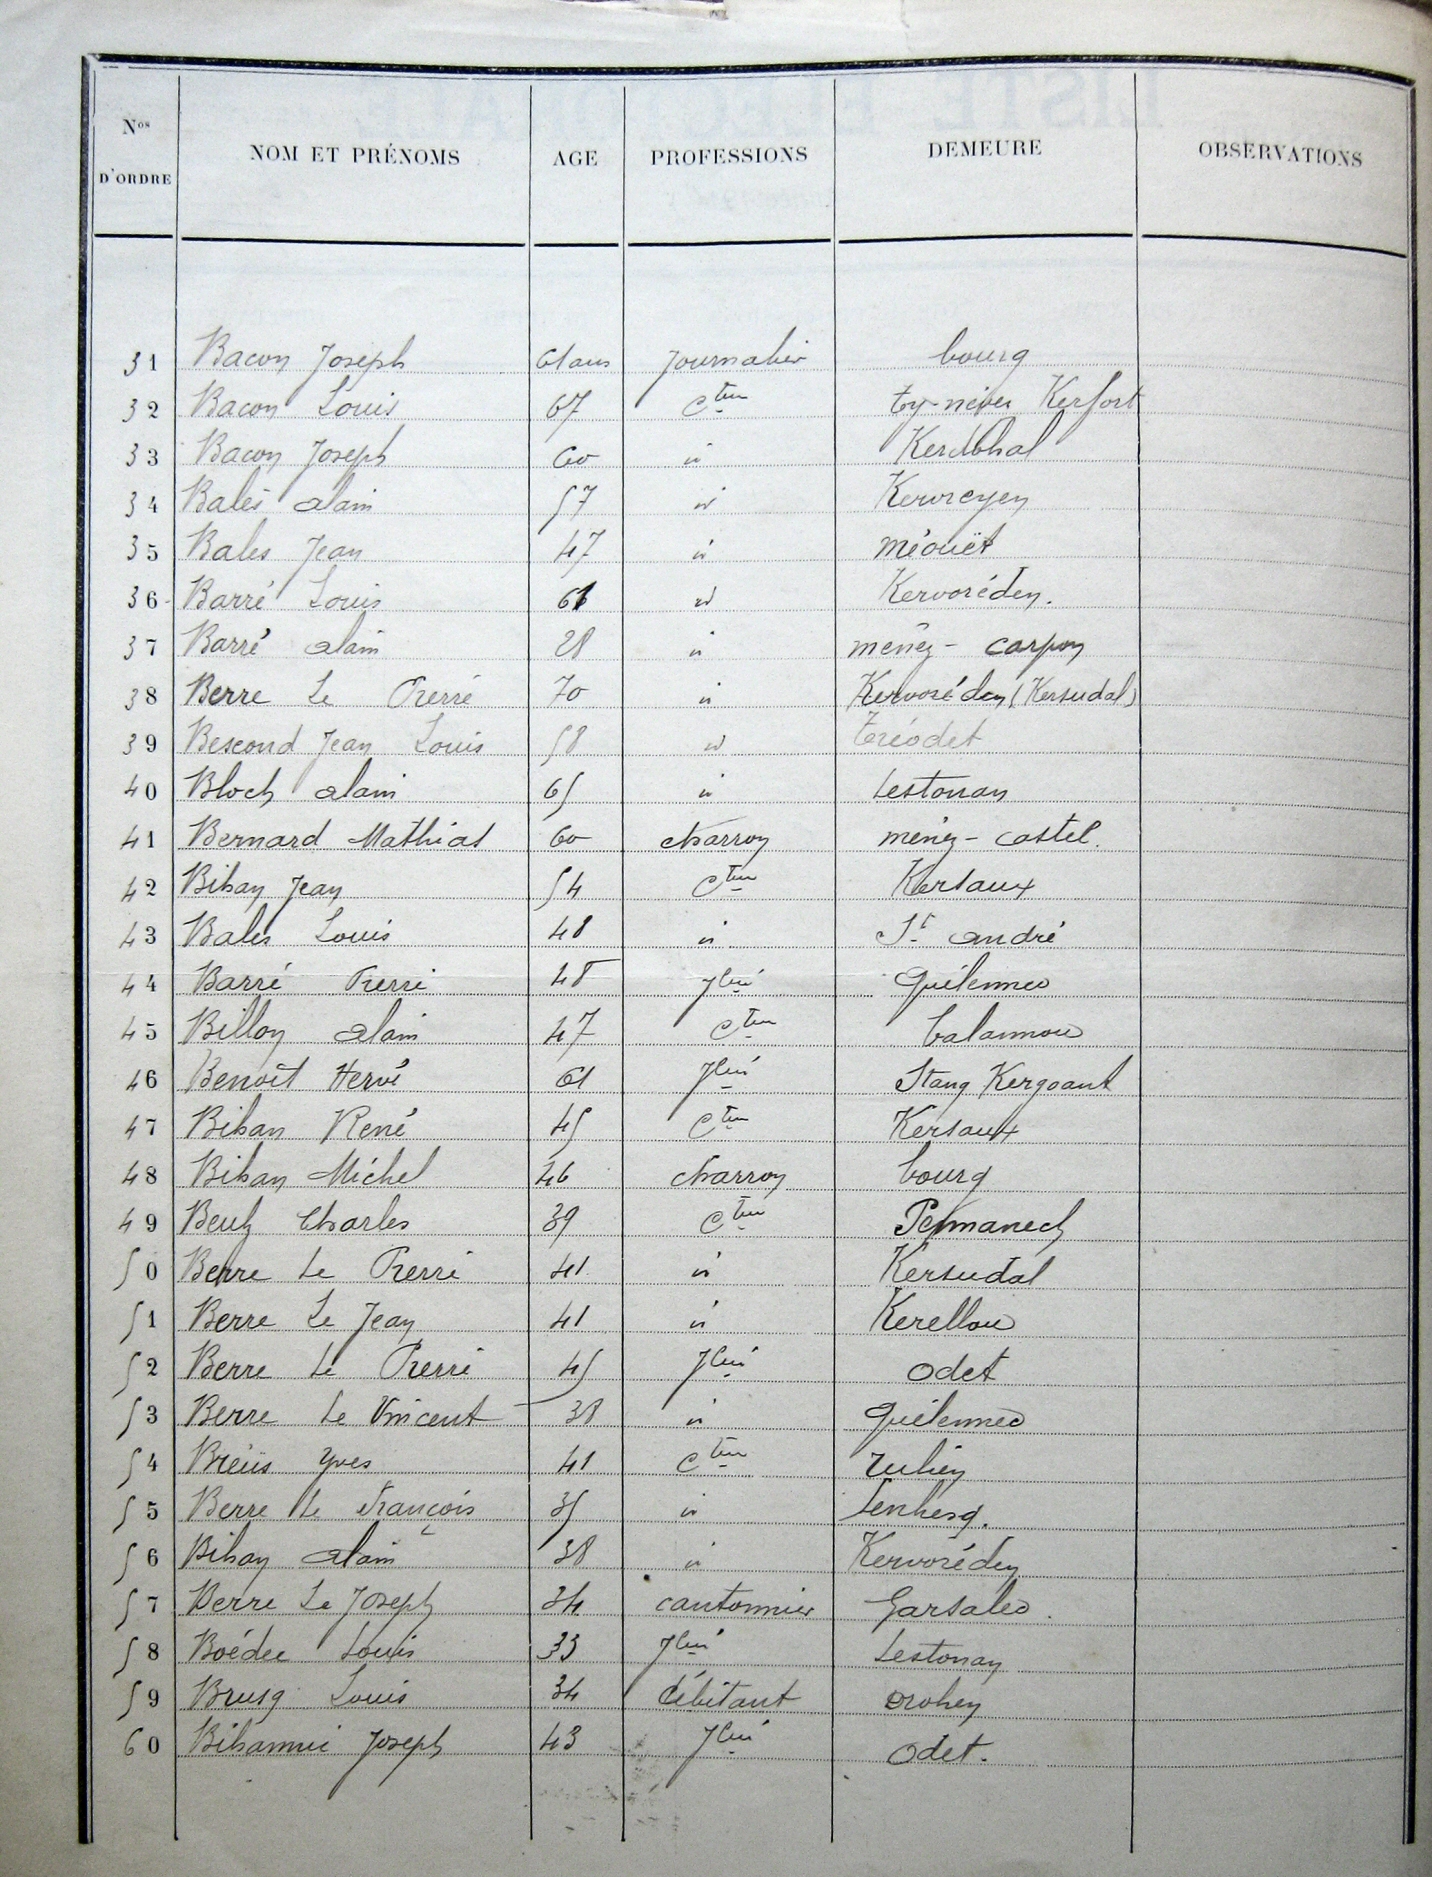 Nos D'ORDRE NOM ET PRÉNOMS AGE PROFESSIONS DEMEURE OBSERVATIONS
31 Bacon Joseph 61 ans journalier bourg
32 Bacon Louis 67 Cteur Ty-névez Kerfort
33 Bacon Joseph 60 id
34 Balès alain 57 id Kervreyen
35 Balès Jean 47 id méouët
36 Barré Louis id Kervoréden.
37 Barré alain 28 id ménez - carpon
38 Berre Le Pierre 70 id Kervoréden (Kersudal)
39 Bescond Jean Louis 58 id Tréodet
40 Bloch alain 65 id Lestonan
41 Bernard Mathias 60 charron ménez - castel.
42 Bihan Jean 54 Cteur Kersaux
43 Balès Louis 48 id St andré
44 Barré Pierre 48 Jlier Quélennec
45 Billon alain 47 Cteur balannou
46 Benoît Hervé 61 Jlier Stang Kergoant
47 Bihan René 45 Cteur Kersaux
48 Bihan Michel 46 charron bourg
49 Beulz Charles 39 Cteur Penmanech
50 Berre Le Pierre 41 id Kersudal
51 Berre Le Jean 41 id Kerellou
52 Berre Le Pierre 45 Jlier Odet
53 Berre Le Vincent 38 id Quélennec
54 Bréüs Yves 41 Cteur
55 Berre Le François 35 id Lenhesq.
56 Bihan alain 38 id Kervoréden
57 Berre Le Joseph 34 cantonnier Garsalec.
58 Boédec Louis 33 Jlier Lestonan
59 Brusq Louis 34 débitant
60 Bihannic Joseph 43 Jlier Odet.